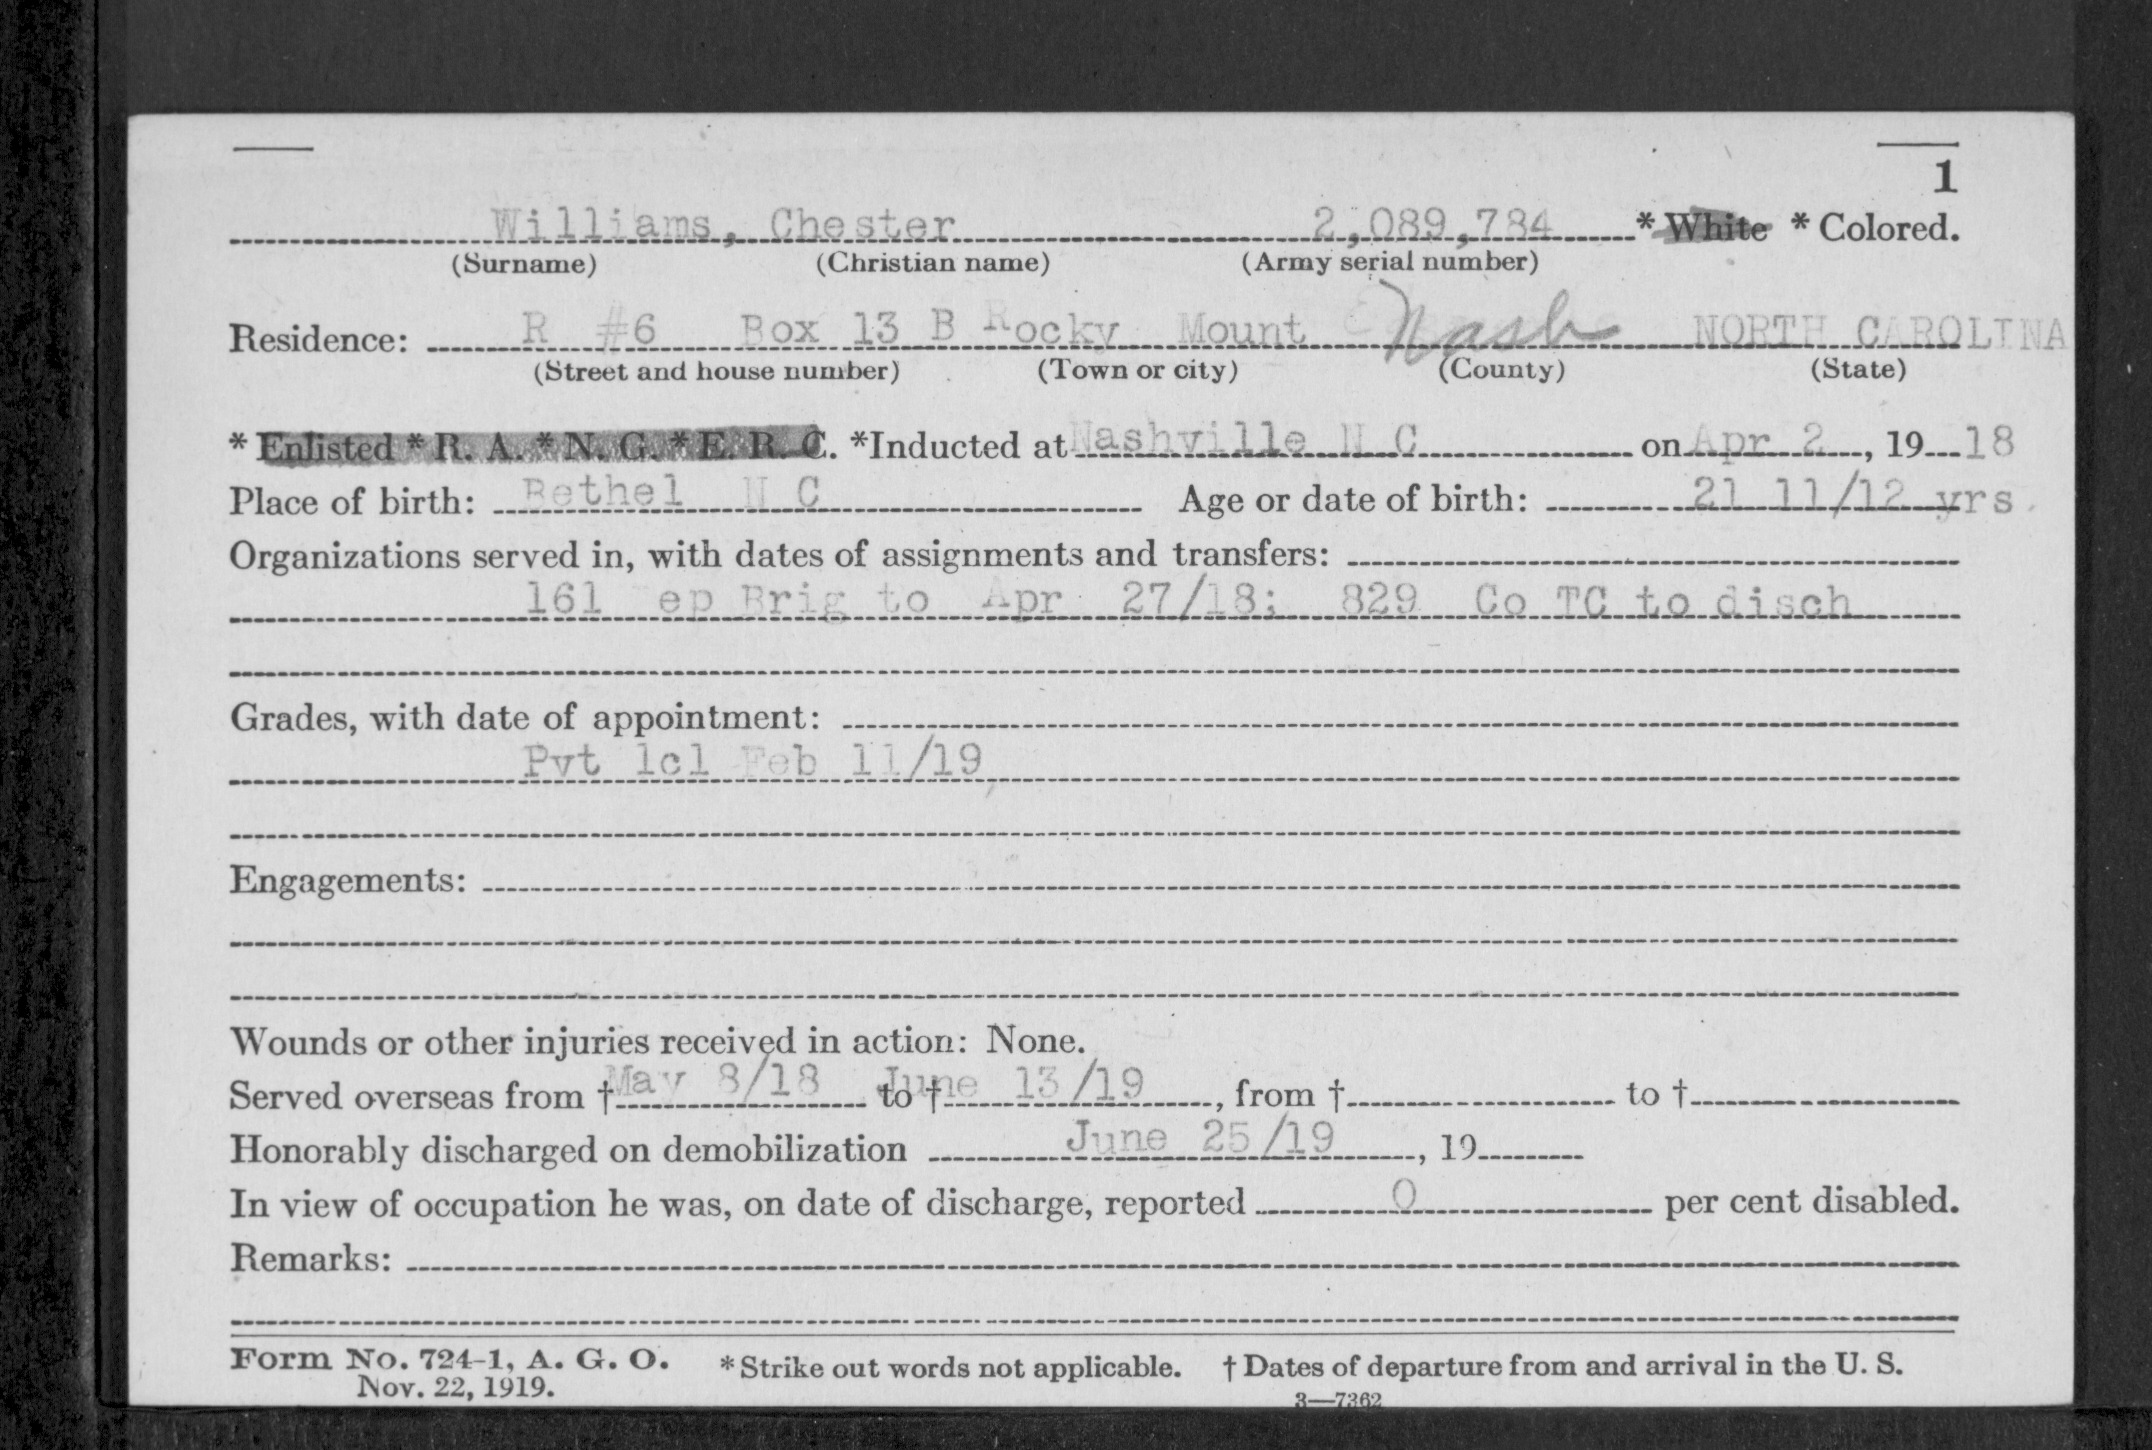 1
Williams, Chester 2,089,784 * White * Colored.
(Surname) (Christian name) (Army serial number)
Residence: R #6 Box 13 B Rocky Mount Nash NORTH CAROLINA
(Street and house number) (Town or city) (County) (State)
* Enlisted * R. A. * N. G. * E. R. C. *Inducted at Nashville N C on Apr 2, 19 18
Place of birth: Bethel N C Age or date of birth: 21 11/12 yrs.
Organizations served in, with dates of assignments and transfers:
161 ep Brig to Apr 27/18; 829 Co TC to disch
Grades, with date of appointment:
Pvt 1cl Feb 11/19
Engagements:
Wounds or other injuries received in action: None.
Served overseas from † May 8/18 to † June 13/19, from † to †
Honorably discharged on demobilization June 25/19, 19
In view of occupation he was, on date of discharge, reported 0 per cent disabled.
Remarks:
Form No. 724-1, A. G. O. * Strike out words not applicable. † Dates of departure from and arrival in the U. S.
Nov. 22, 1919. 3—7362